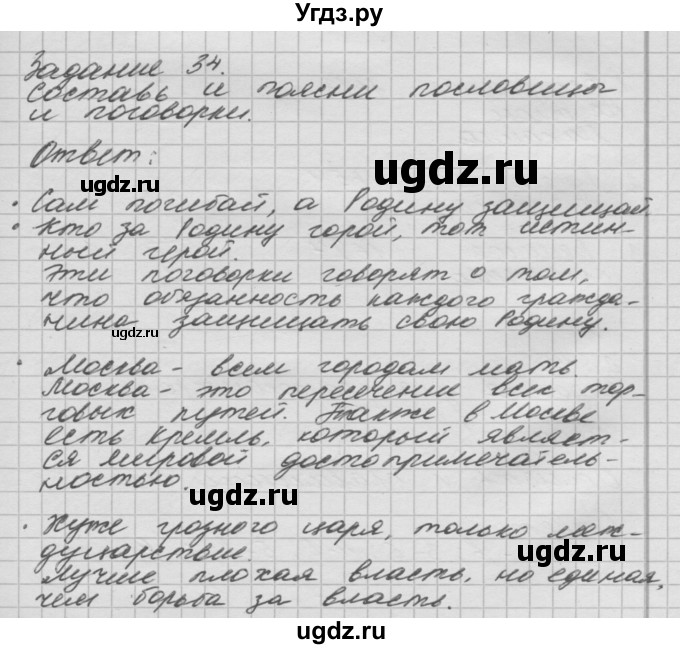 Угдз.ру
Задание 34.
Составь и поясни пословицы
и поговорки.
Ответ:
ugdz.ru
ugdz.ru
• Сам погибай, а Родину защищай.
• Кто за Родину горой, тот истин-
ный герой.
Эти поговорки говорят о том,
что обязанность каждого гражда-
нина защищать свою Родину.
ugdz.ru
• Москва - всем городам мать.
Москва - это пересечение всех тор-
говых путей. Также в Москве
есть Кремль, который являет-
ся мировой достопримечатель-
ностью.
ugdz.ru
• Хуже грозного царя, только меж-
дуцарствие.
ugdz.ru
Лучше плохая власть, но единая,
чем борьба за власть.
ugdz.ru